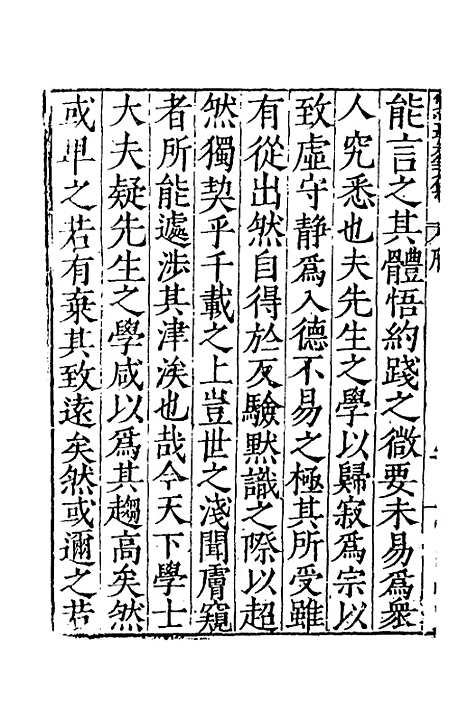 能言之其體悟約踐之微要未易爲衆
人究悉也夫先生之學以歸寂爲宗以
致虛守静爲入德不易之極其所受雖
有從出然自得於反驗默識之際以超
然獨契乎千載之上豈世之淺聞膚窺
者所能遽涉其津涘也哉今天下學士
大夫疑先生之學咸以爲其趨高矣然
或卑之若有棄其致遠矣然或邇之若